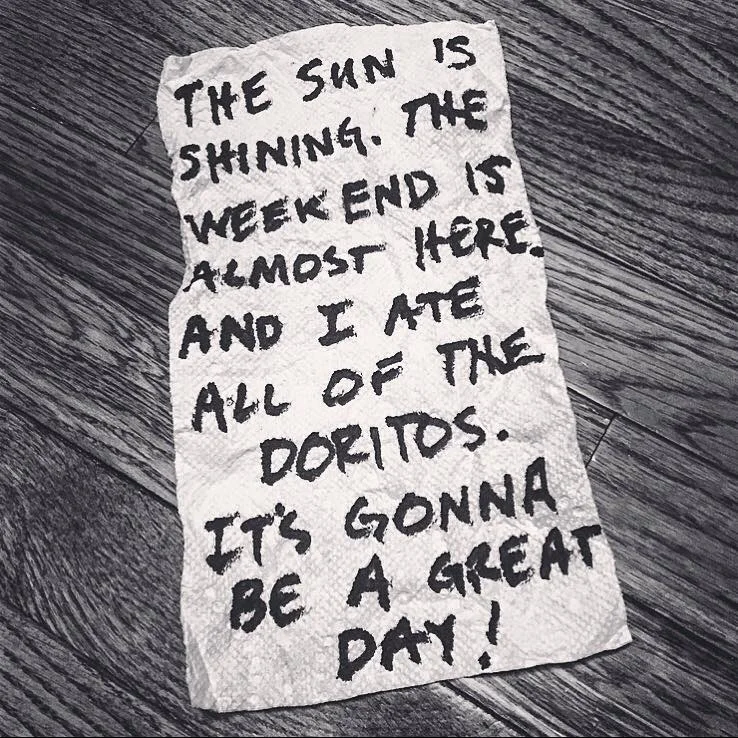 THE SUN IS
SHINING. THE
WEEKEND IS
ALMOST HERE.
AND I ATE
ALL OF THE
DORITOS.
IT'S GONNA
BE A GREAT
DAY!